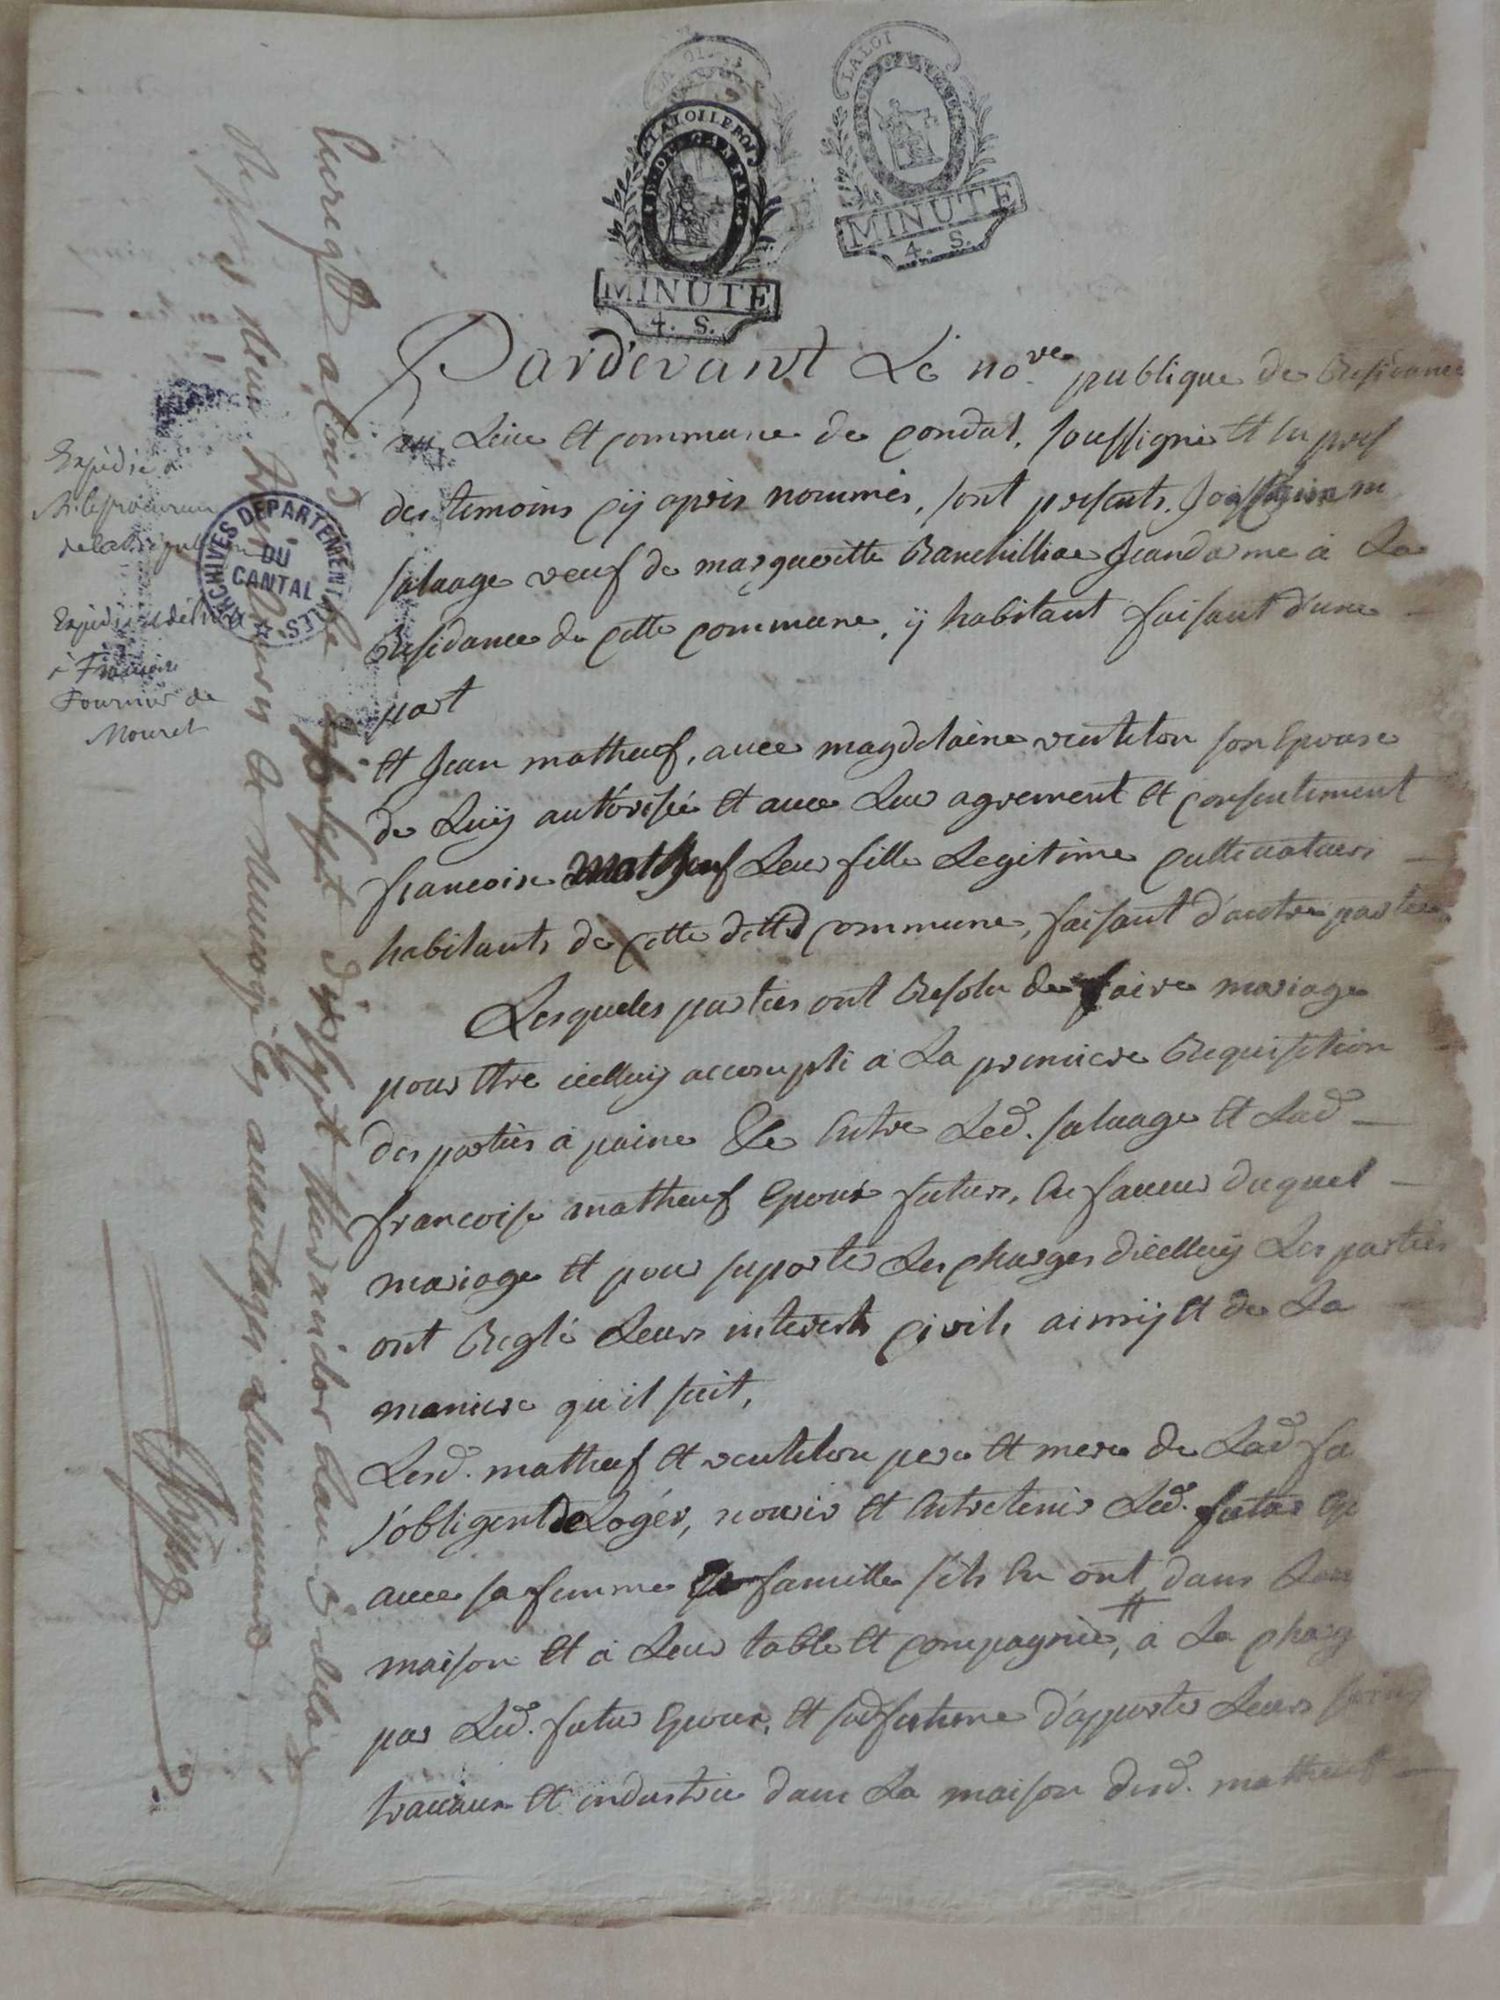 LA LOI
LA LOI LE ROI
DU CANTAL
MINUTE
4. S.
MINUTE
4. S.
Pardevant Le no.re publique de Residance
au Lieu et commune de condat, soussigné et en pres
des temoins cy apres nommés, sont presents,
salvage veuf de margueritte Jeandarme à La
Residance de cette commune, ÿ habitant faisant d'une
part
et Jean matheuf, avec magdelaine ventelon son Epouse
de Luÿ autorisée et avec Leur agrement et consentement
francoise matheuf Leur fille Legitime cultivateurs
habitants de cette ditte commune, faisant d'autre partie
Lesqueles parties ont Resolu de faire mariage
pour Etre icelluy accompli à La premiere Requisition
des parties à paine &c Entre Led. salvage et Lad.
francoise matheuf Epoux futurs, En faveur duquel
mariage et pour suporter Les charges d'icelluy Les parties
ont Reglé Leurs interets civils ainsÿ et de La
maniere qu'il suit,
Lesd. matheuf et ventelon pere et mere de Lad. fu
s'obligent de Loger, nourir et Entretenir Led. futur Ep
avec sa femme famille s'ils En ont, dans Leur
maison et à Leur table et compagnie, à La charg
par Led. futur Epoux, et sad. future d'apporter Leurs soins
travaux et industrie dans La maison desd. matheuf
Expédié à
M. le procureur
de la République
Expédié
à François
Fournier de
Mouret
ARCHIVES DEPARTEMENTALES
DU
CANTAL
Enregtré à Condat le dixsept thermidor l'an